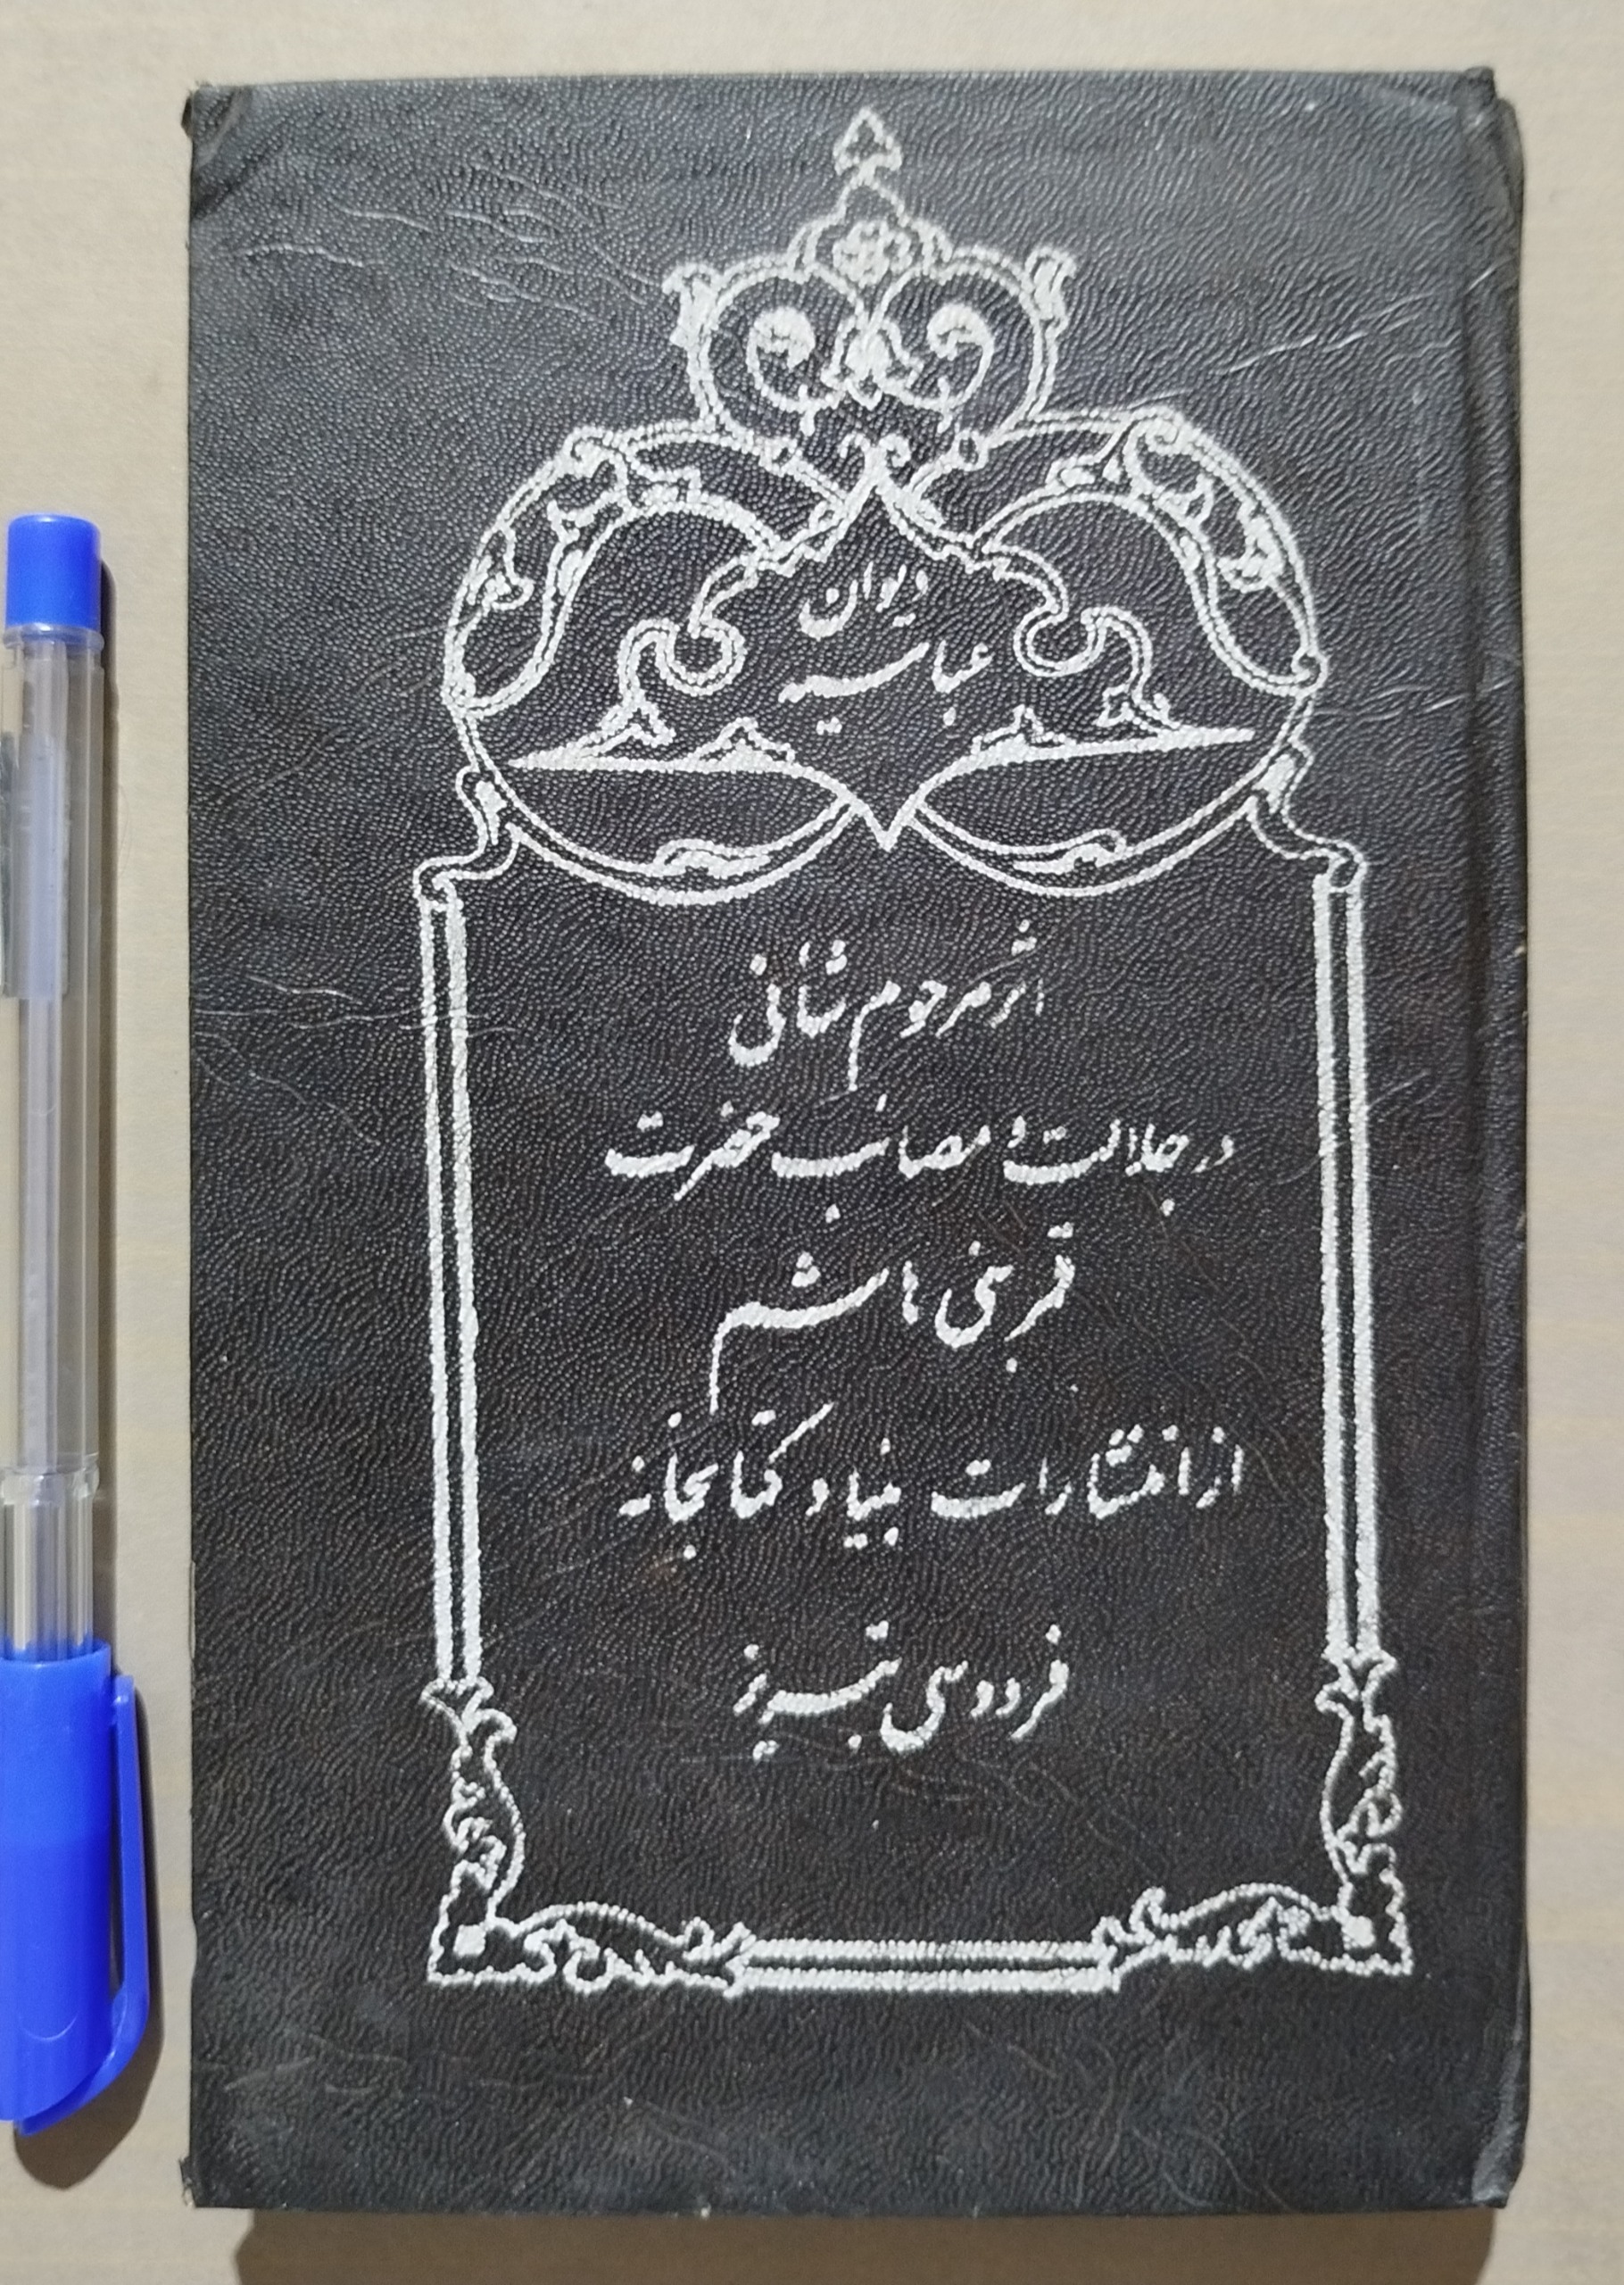 دیوان
عباسیه
اثر مرحوم شانی
در جلالت و مصائب حضرت
قمر بنی هاشم
از انتشارات بنیاد کتابخانه
فردوسی تبریز